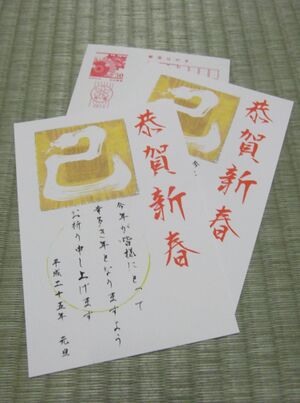 恭賀新春
巳
今年が皆様にとって
幸多き年となりますよう
お祈り申し上げます
平成二十五年 元旦
恭賀新春
巳
今
50